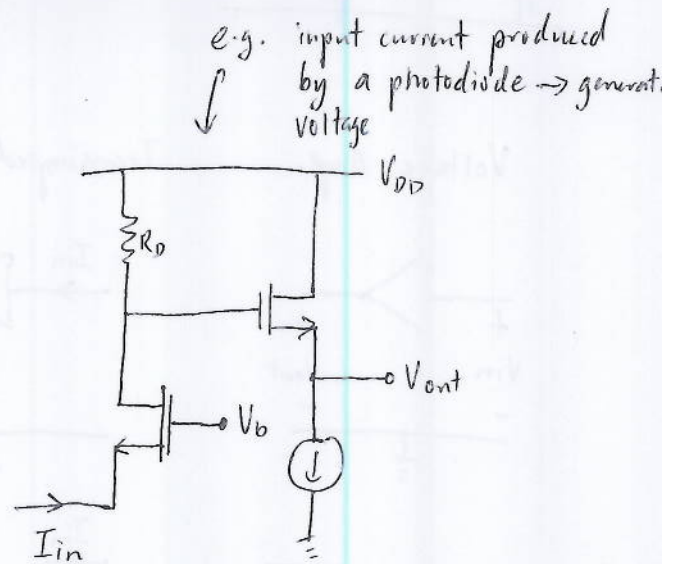 e.g. input current produced
by a photodiode → generat
voltage
V_DD
R_D
V_out
V_b
I_in